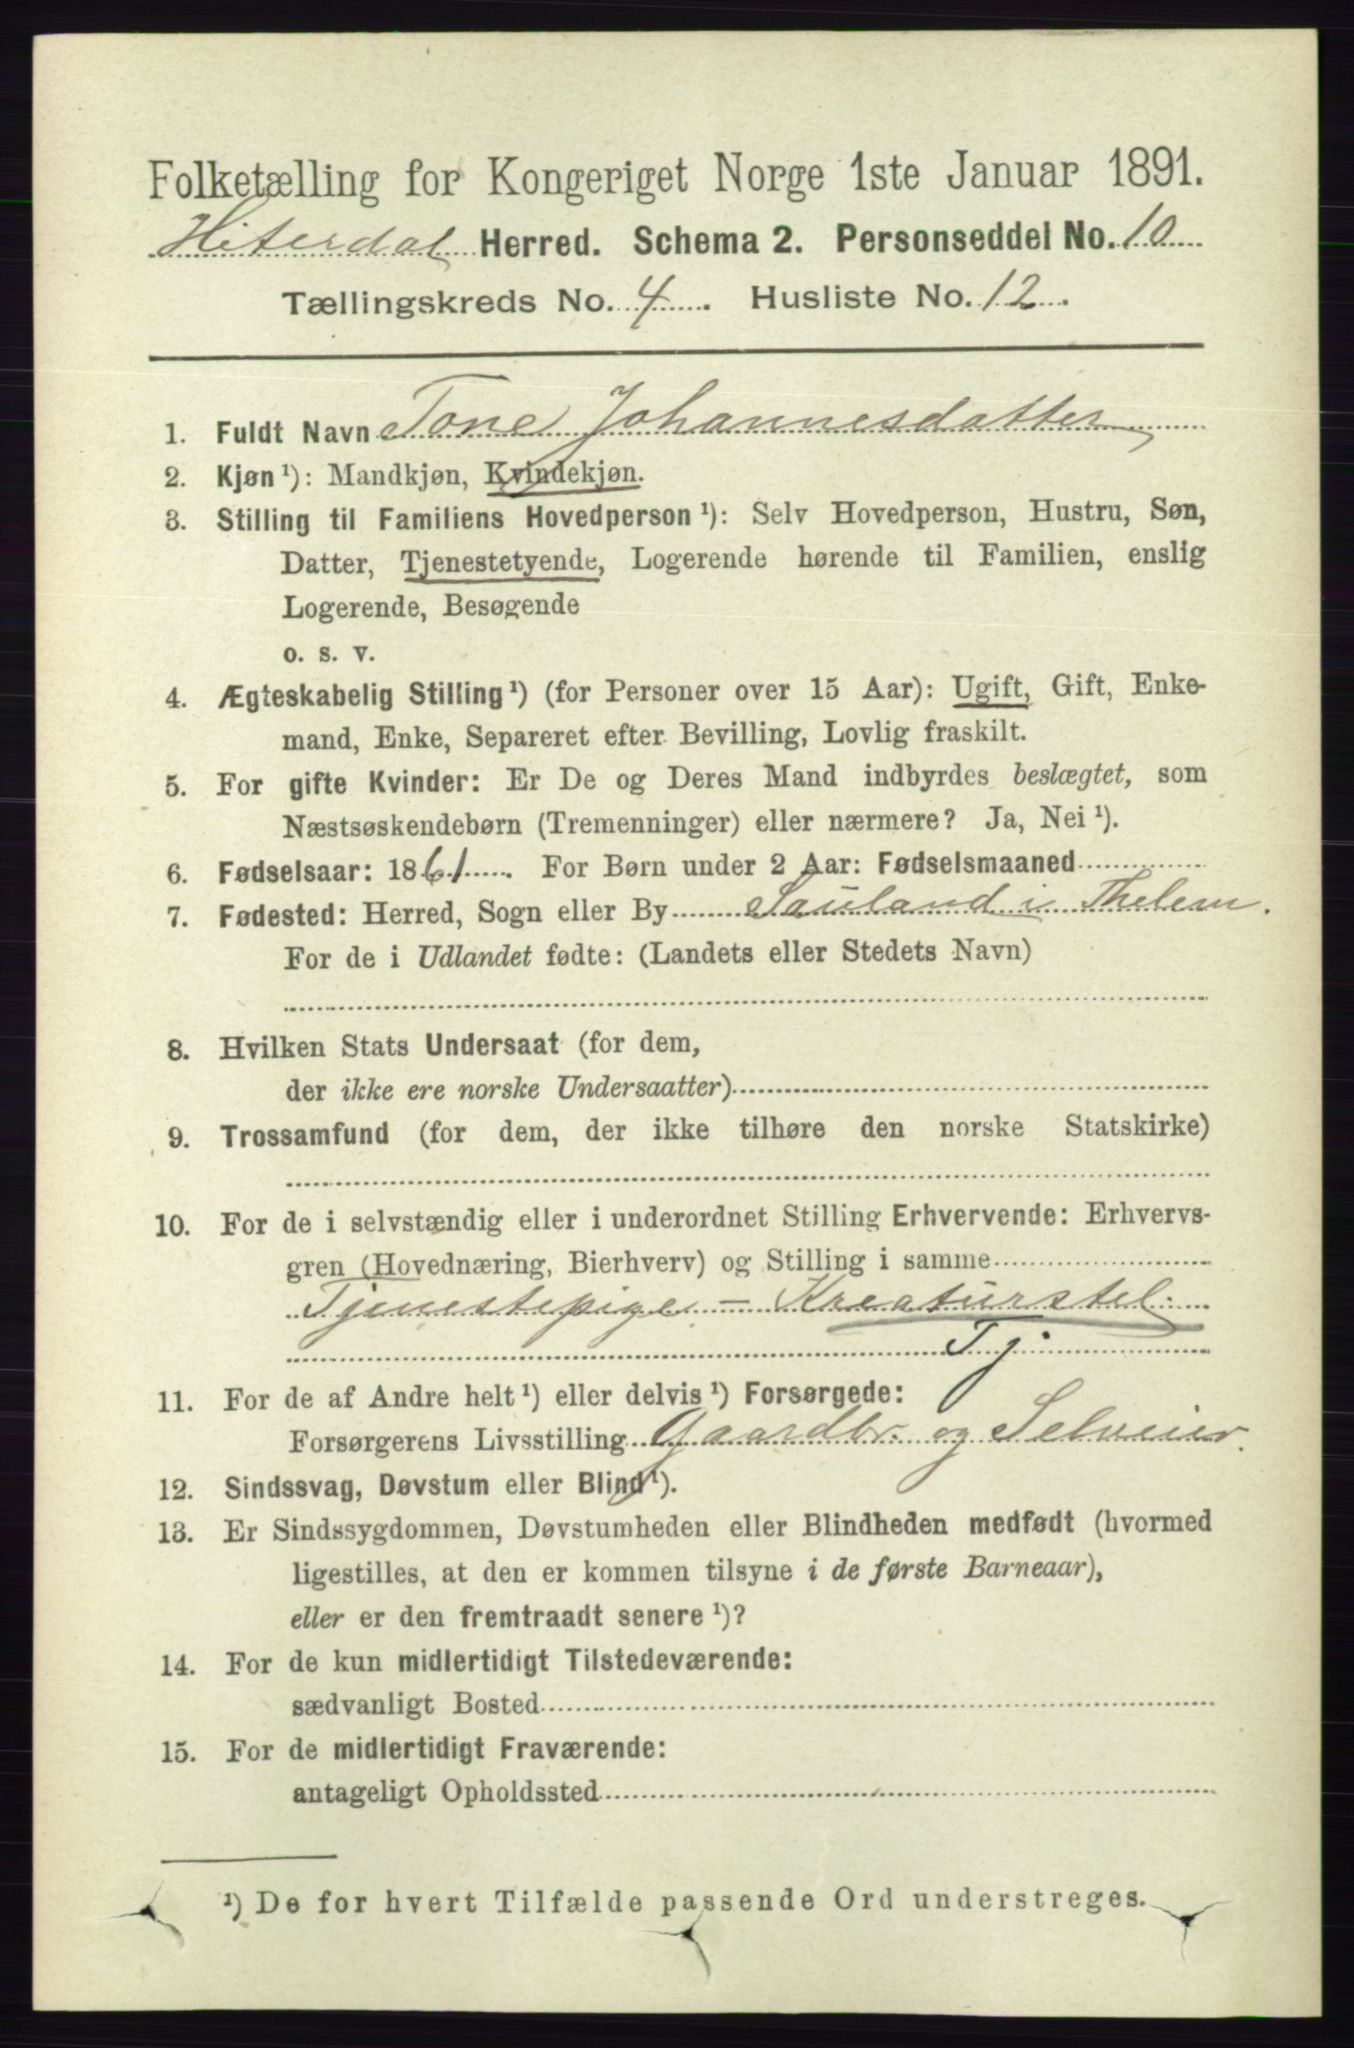 Folketælling for Kongeriget Norge 1ste Januar 1891.
Hiterdal Herred. Schema 2. Personseddel No. 10
Tællingskreds No. 4. Husliste No. 12.
1. Fuldt Navn Tone Johannesdatter
2. Kjøn ¹): Mandkjøn, Kvindekjøn.
3. Stilling til Familiens Hovedperson ¹): Selv Hovedperson, Hustru, Søn,
Datter, Tjenestetyende, Logerende hørende til Familien, enslig
Logerende, Besøgende
o. s. v.
4. Ægteskabelig Stilling ¹) (for Personer over 15 Aar): Ugift, Gift, Enke-
mand, Enke, Separeret efter Bevilling, Lovlig fraskilt.
5. For gifte Kvinder: Er De og Deres Mand indbyrdes beslægtet, som
Næstsøskendebørn (Tremenninger) eller nærmere? Ja, Nei ¹).
6. Fødselsaar: 1861. For Børn under 2 Aar: Fødselsmaaned
7. Fødested: Herred, Sogn eller By Sauland i Thelem.
For de i Udlandet fødte: (Landets eller Stedets Navn)
8. Hvilken Stats Undersaat (for dem,
der ikke ere norske Undersaatter)
9. Trossamfund (for dem, der ikke tilhøre den norske Statskirke)
10. For de i selvstændig eller i underordnet Stilling Erhvervende: Erhvervs-
gren (Hovednæring, Bierhverv) og Stilling i samme
Tjenestepige - Kreaturstel
Tj
11. For de af Andre helt ¹) eller delvis ¹) Forsørgede:
Forsørgerens Livsstilling Gaardbr. og Selveier.
12. Sindssvag, Døvstum eller Blind ¹).
13. Er Sindssygdommen, Døvstumheden eller Blindheden medfødt (hvormed
ligestilles, at den er kommen tilsyne i de første Barneaar),
eller er den fremtraadt senere ¹)?
14. For de kun midlertidigt Tilstedeværende:
sædvanligt Bosted
15. For de midlertidigt Fraværende:
antageligt Opholdssted
¹) De for hvert Tilfælde passende Ord understreges.